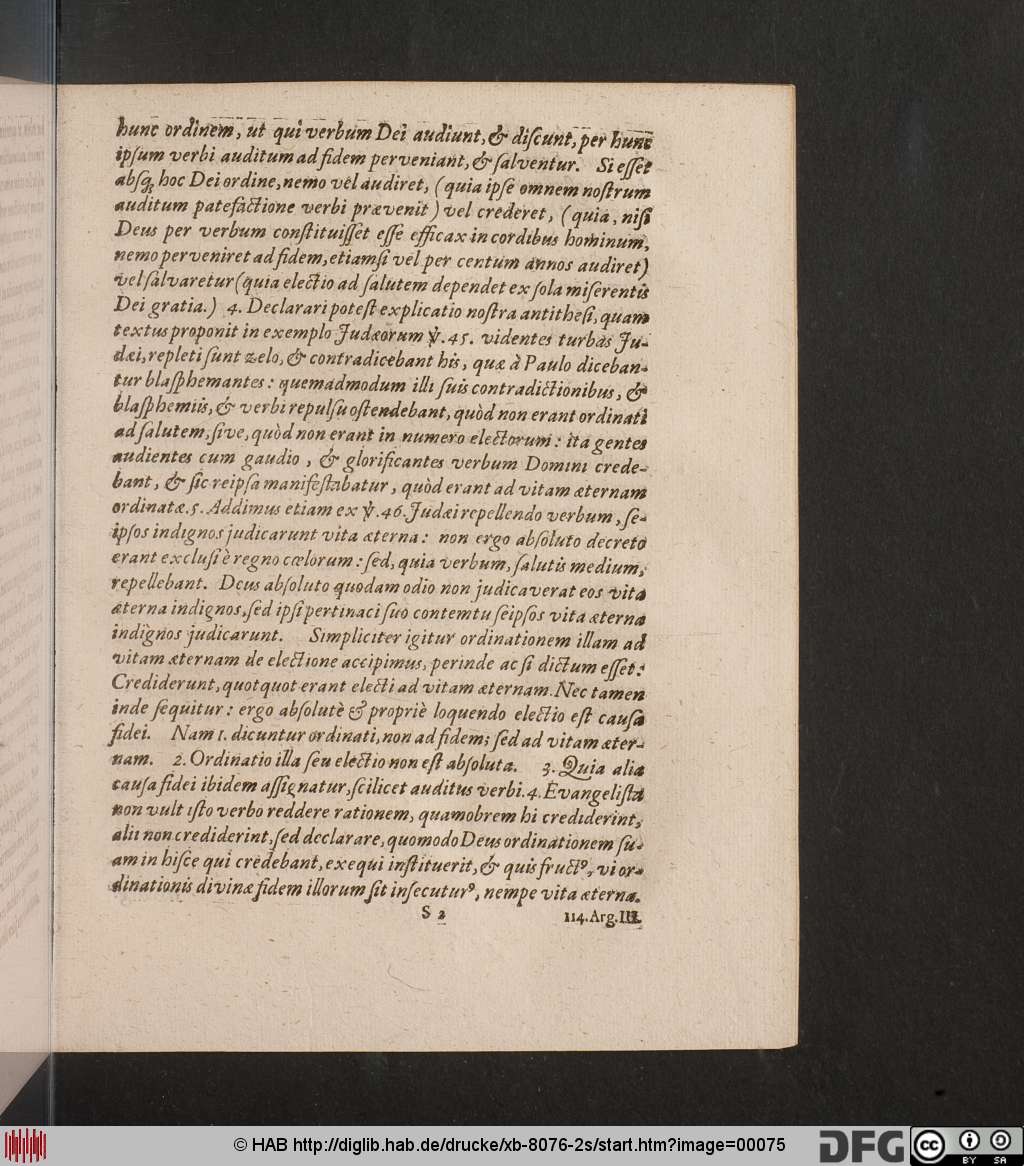 hunc ordinem, ut qui verbum Dei audiunt, & diſcunt, per hunc
ipſum verbi auditum ad fidem perveniant, & ſalventur. Si eſſet
abſq; hoc Dei ordine, nemo vel audiret, (quia ipſe omnem noſtrum
auditum patefactione verbi prævenit) vel crederet, (quia, niſi
Deus per verbum conſtituiſſet eſſe efficax in cordibus hominum,
nemo perveniret ad fidem, etiamſi vel per centum annos audiret)
vel ſalvaretur (quia electio ad ſalutem dependet ex ſola miſerentis
Dei gratia.) 4. Declarari poteſt explicatio noſtra antitheſi, quam
textus proponit in exemplo Judæorum ℣. 45. videntes turbas Ju-
dæi, repleti ſunt zelo, & contradicebant his, quæ à Paulo diceban-
tur blaſphemantes: quemadmodum illi ſuis contradictionibus, &
blaſphemiis, & verbi repulſu oſtendebant, quòd non erant ordinati
ad ſalutem, ſive, quòd non erant in numero electorum: ita gentes
audientes cum gaudio, & glorificantes verbum Domini crede-
bant, & ſic reipſa manifeſtabatur, quòd erant ad vitam æternam
ordinatæ. 5. Addimus etiam ex ℣. 46. Judæi repellendo verbum, ſe-
ipſos indignos judicarunt vita æterna: non ergo abſoluto decreto
erant excluſi è regno cœlorum: ſed, quia verbum, ſalutis medium,
repellebant. Deus abſoluto quodam odio non judicaverat eos vita
æterna indignos, ſed ipſi pertinaci ſuo contemtu ſeipſos vita æterna
indignos judicarunt. Simpliciter igitur ordinationem illam ad
vitam æternam de electione accipimus, perinde ac ſi dictum eſſet:
Crediderunt, quotquot erant electi ad vitam æternam. Nec tamen
inde ſequitur: ergo abſolutè & propriè loquendo electio eſt cauſa
fidei. Nam 1. dicuntur ordinati, non ad fidem; ſed ad vitam æter-
nam. 2. Ordinatio illa ſeu electio non eſt abſoluta. 3. Quia alia
cauſa fidei ibidem aſſignatur, ſcilicet auditus verbi. 4. Evangeliſta
non vult iſto verbo reddere rationem, quamobrem hi crediderint,
alii non crediderint, ſed declarare, quomodo Deus ordinationem ſu-
am in hiſce qui credebant, exequi inſtituerit, & quis fructꝰ, vi or-
dinationis divinæ fidem illorum ſit inſecuturꝰ, nempe vita æterna.
S 2 114. Arg. III.
© HAB http://diglib.hab.de/drucke/xb-8076-2s/start.htm?image=00075
DFG
cc BY SA